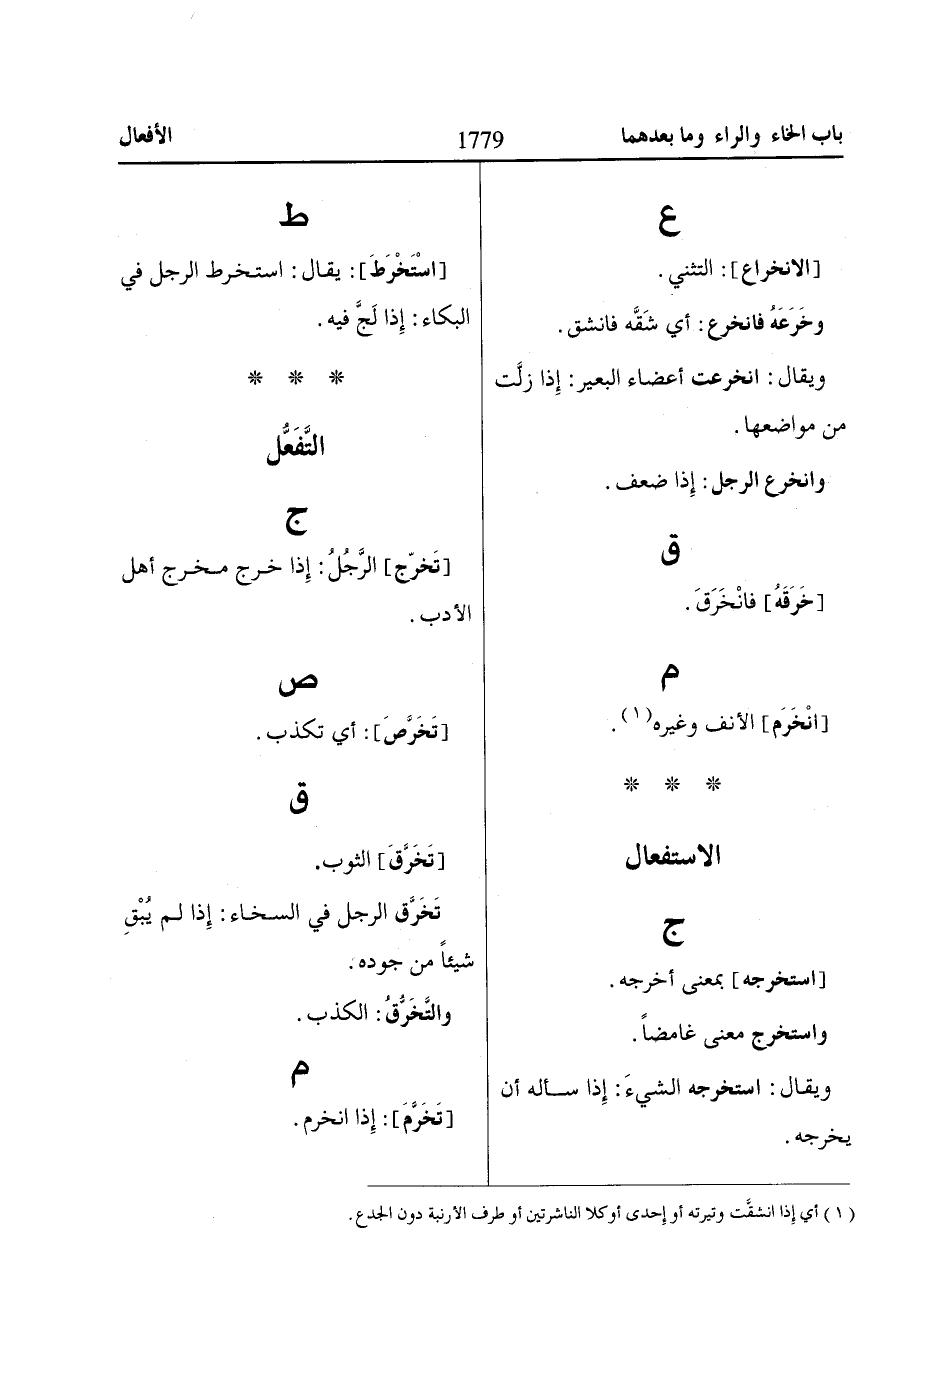 باب الخاء والراء وما بعدهما
1779
الأفعال
ع
[الانخراع]: التثني.
وخَرَعَهُ فانخرع: أي شَقَّه فانشق.
ويقال: انخرعت أعضاء البعير: إذا زلَّت
من مواضعها.
وانخرع الرجل: إذا ضعف.
ق
[خَرَقَهُ] فانْخَرَقَ.
م
[انْخَرَم] الأنف وغيره(١).
* * *
الاستفعال
ج
[استخرجه] بمعنى أخرجه.
واستخرج معنى غامضاً.
ويقال: استخرجه الشيءَ: إذا سأله أن
يخرجه.
ط
[اسْتَخْرَطَ]: يقال: استخرط الرجل في
البكاء: إذا لَجَّ فيه.
* * *
التَّفَعُّل
ج
[تَخرّج] الرَّجُلُ: إذا خرج مخرج أهل
الأدب.
ص
[تَخَرَّصَ]: أي تكذب.
ق
[تَخَرَّقَ] الثوب.
تَخَرَّق الرجل في السخاء: إذا لم يُبْقِ
شيئاً من جوده.
والتَّخَرُّقُ: الكذب.
م
[تَخَرَّمَ]: إذا انخرم.
(١) أي إذا انشقَّت وتيرته أو إحدى أوكلا الناشرتين أو طرف الأرنبة دون الجدع.